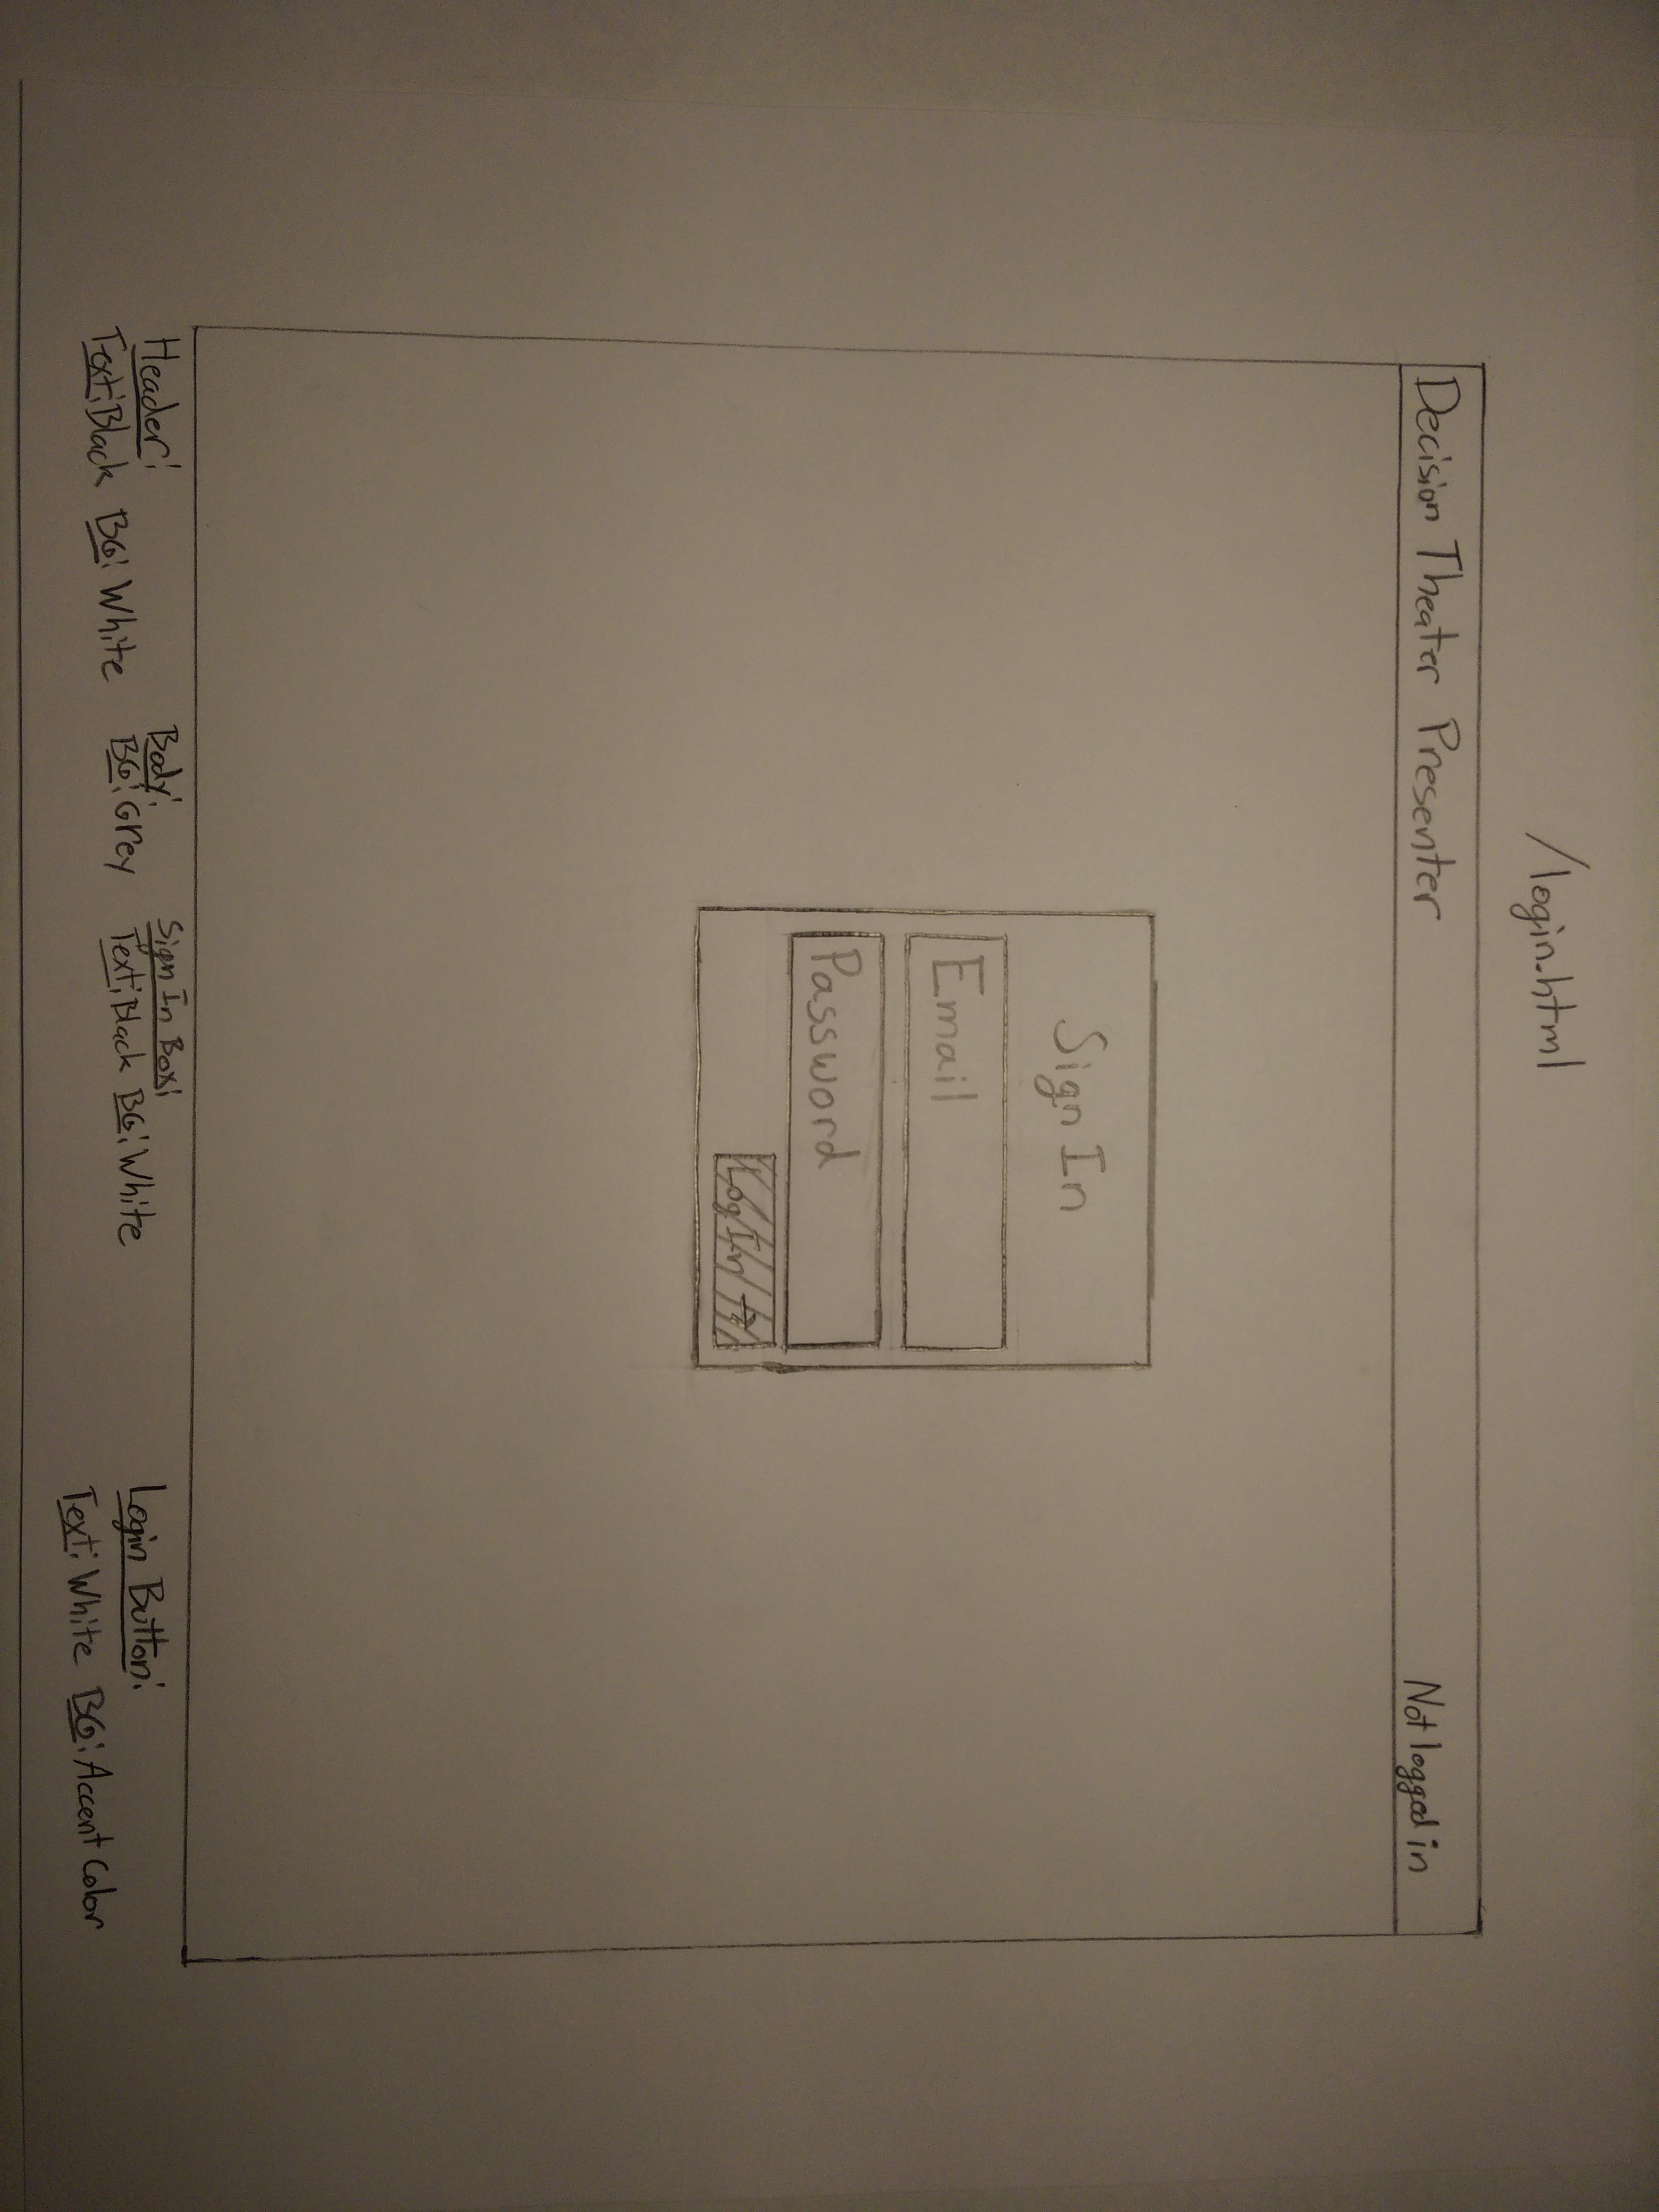 /login.html
Decision Theater Presenter
Not logged in
Sign In
Email
Password
Log In →
Header:
Text: Black BG: White
Body:
BG: Grey
Sign In Box:
Text: Black BG: White
Login Button:
Text: White BG: Accent Color